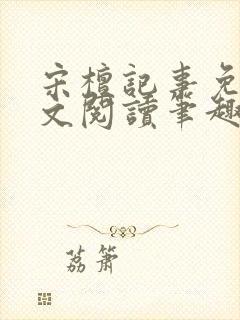 宋檀記事免
文閱讀筆趣
荔簫